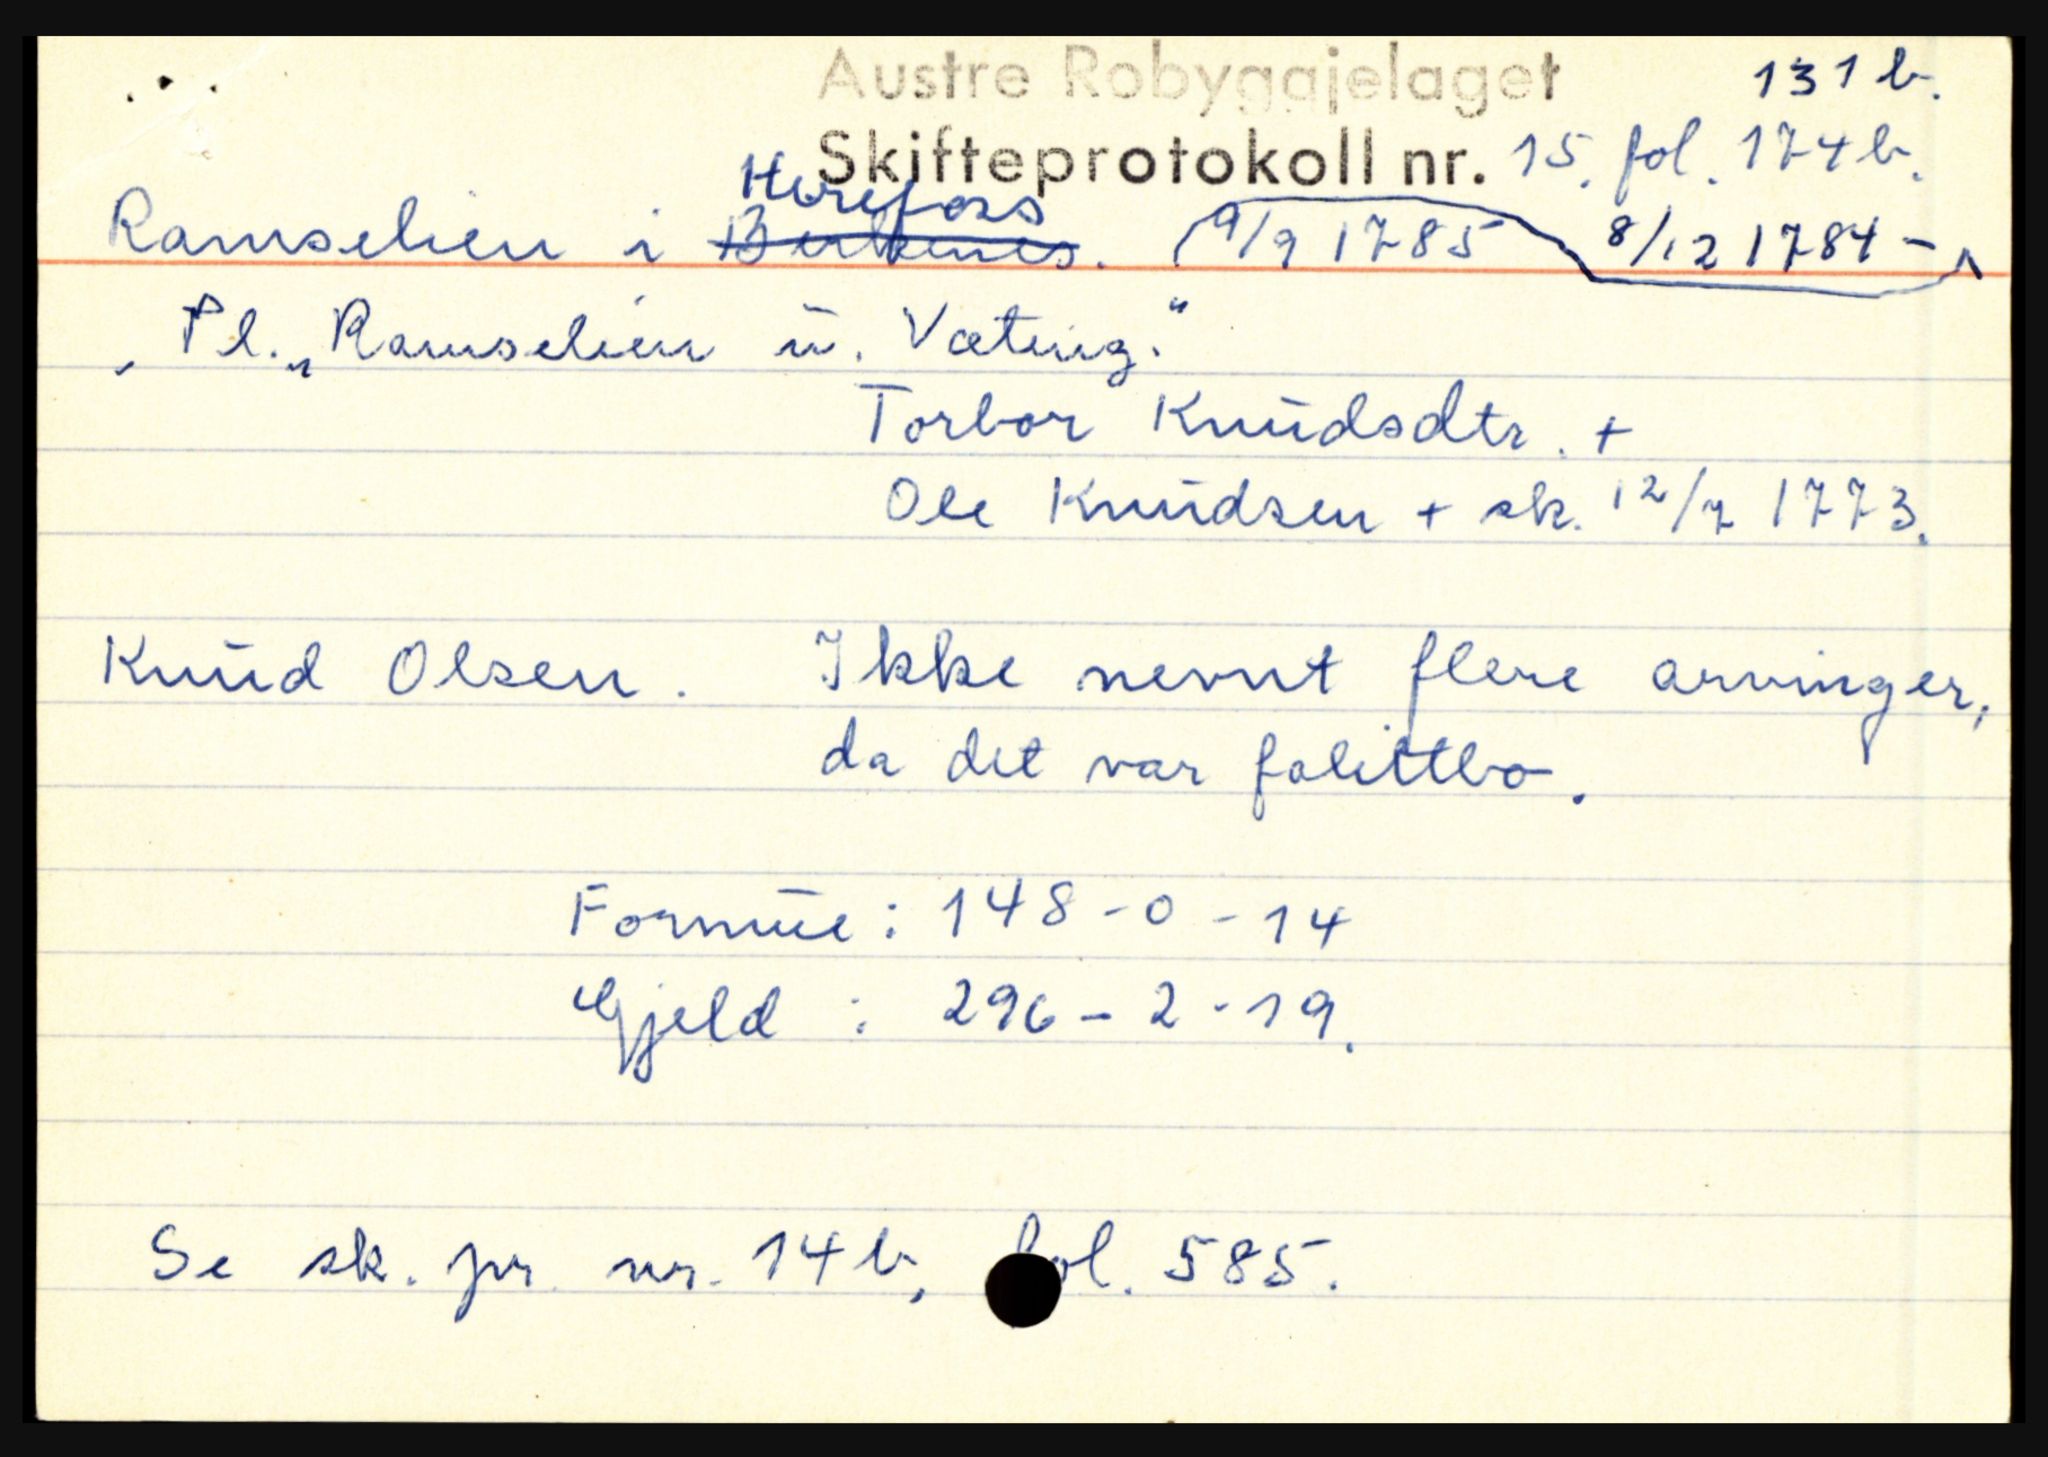 Austre Robyggjelaget 131 b.
Skifteprotokoll nr. 15. fol. 174 b.
Herefoss
Ramselien i Birkenes. 9/9 1785 8/12 1784 -
Pl. „Ramselien u. Væting."
Torbor Knudsdtr. +
Ole Knudsen + sk. 12/7 1773.
Knud Olsen. Ikke nevnt flere arvinger,
da det var falittbo.
Formue: 148 - 0 - 14
Gjeld : 296 - 2 - 19.
Se sk. pr. nr. 14 b, fol. 585.